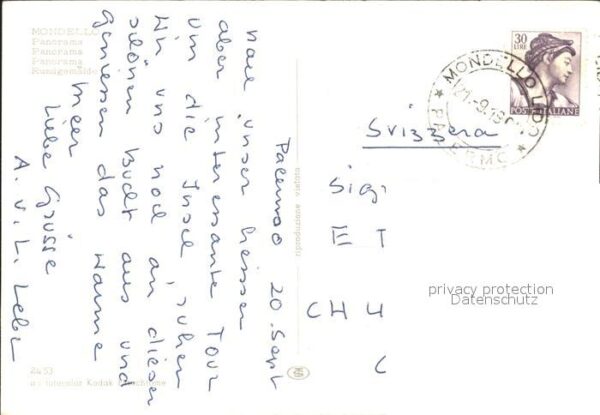 MONDELLO
Panorama
Panorama
Panorama
Palermo 20. Sept
nach unser heissen
aber interessante Tour
um die Insel, ruhen
wir uns noch an dieser
schönen Bucht aus und
geniessen das warme
Meer
Liebe Grüsse
A. u. L.
2453
riproduzione vietata
30
LIRE
POSTE ITALIANE
MONDELLO LIDO
PALERMO
Svizzera
Sig
ET
CH 4
C
privacy protection
Datenschutz